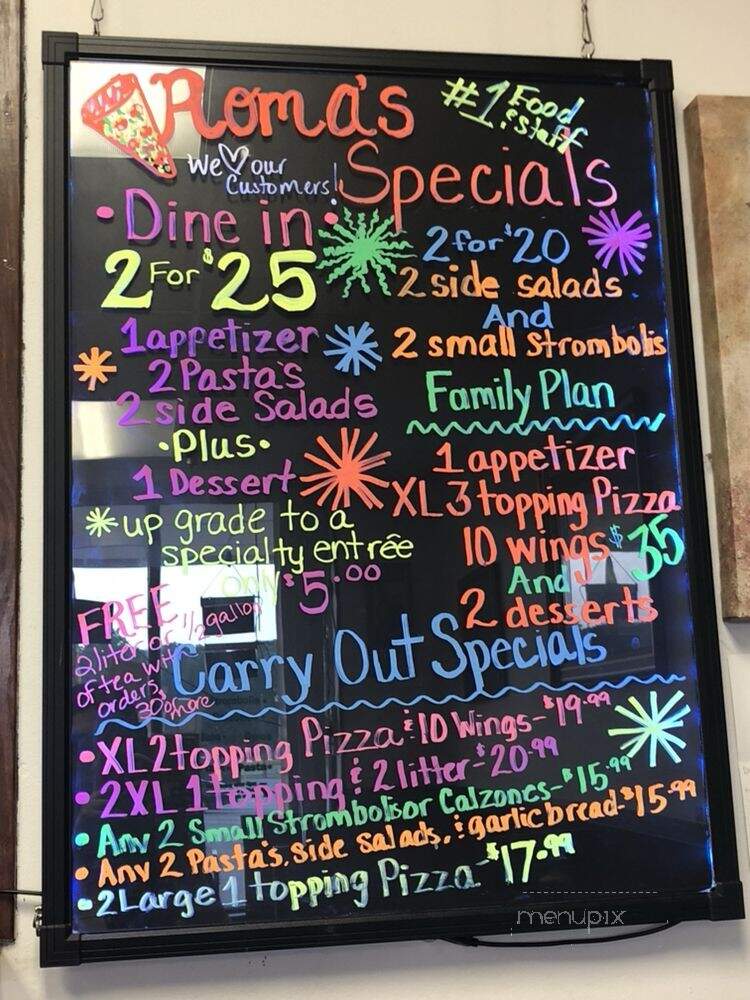 Roma's
#1 Food
& Staff
We ♡ our
Customers!
Specials
• Dine in •
2 For $25
1 appetizer
2 Pasta's
2 side Salads
• Plus •
1 Dessert
* up grade to a
specialty entrée
only $5.00
2 for $20
2 side salads
And
2 small Strombolis
Family Plan
1 appetizer
XL 3 topping Pizza
10 wings $35
And
2 desserts
FREE
2 liter or 1/2 gallon
of tea with
orders
30 or more
Carry Out Specials
• XL 2 topping Pizza & 10 Wings - $19.99
• 2 XL 1 topping & 2 litter - $20.99
• Any 2 Small Strombolis or Calzones - $15.99
• Any 2 Pasta's, side salads, & garlic bread - $15.99
• 2 Large 1 topping Pizza - $17.99
menupix